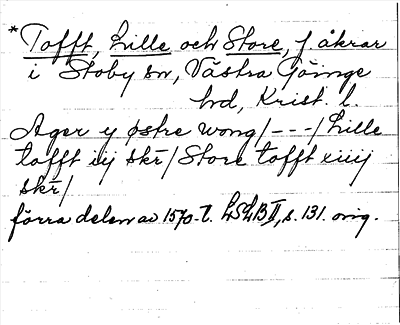 * Tofft, Lille och Store, f. åkrar
i Stoby sn, Västra Göinge
hd, Krist. l.
Ager y østre wong/---/Lille
tofft iij skr̄/Store tofft xiiij
skr̄/
förra delen av 1570-t. LSLB II, s. 131. orig.